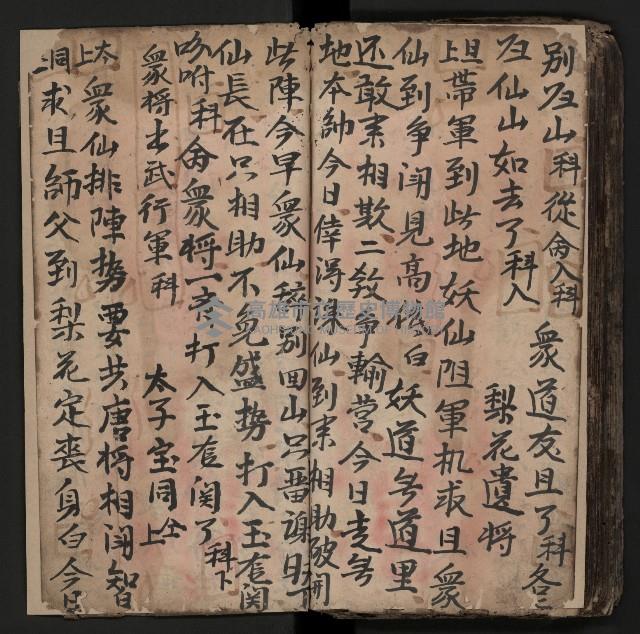 別忍山科從侖入科　衆道友且了科各
忍仙山如去了科入　梨花遺將
上旦帶軍到此地妖仙阻軍机求且衆
仙到爭鬧見高低白妖道無道里
还敢來相欺二教爭輸营今日走無
地本帥今日倖得仙到來相助破開
此陣今早衆仙辞別回山只畨
仙長在只相助不免盛势打入玉關
吩咐科侖衆將一齐打入玉關了科下
衆將本武行軍科　太子宝同仝上
太上衆仙排陣势要共唐將相鬧智
同上求旦師父到梨花定丧身白今日
高雄市立歷史博物館